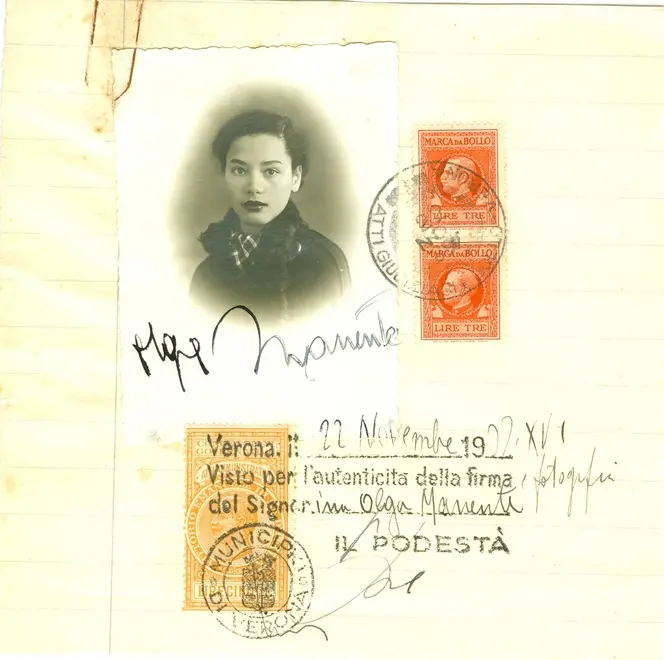 MARCA DA BOLLO
LIRE TRE
MARCA DA BOLLO
LIRE TRE
ATTI GIUDIZIARI
Olga Manenti
Verona, li 22 Novembre 1937. XVI
Visto per l'autenticita della firma e fotografia
del Signorina Olga Manenti
IL PODESTÀ
MUNICIPIO
DI VERONA